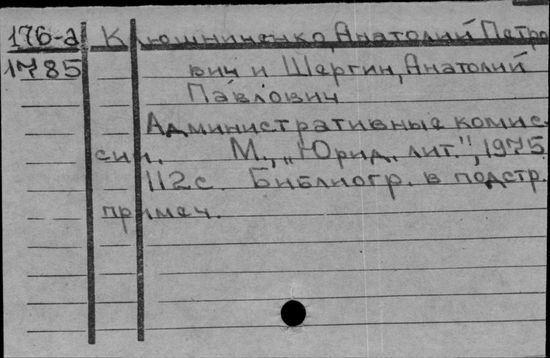 176-а Клюшниченко, Анатолий Петро
1785 вич и Шергин, Анатолий
Павлович
Административные комис-
сии. М., „Юрид. лит.", 1975.
112с. Библиогр. в подстр.
примеч.